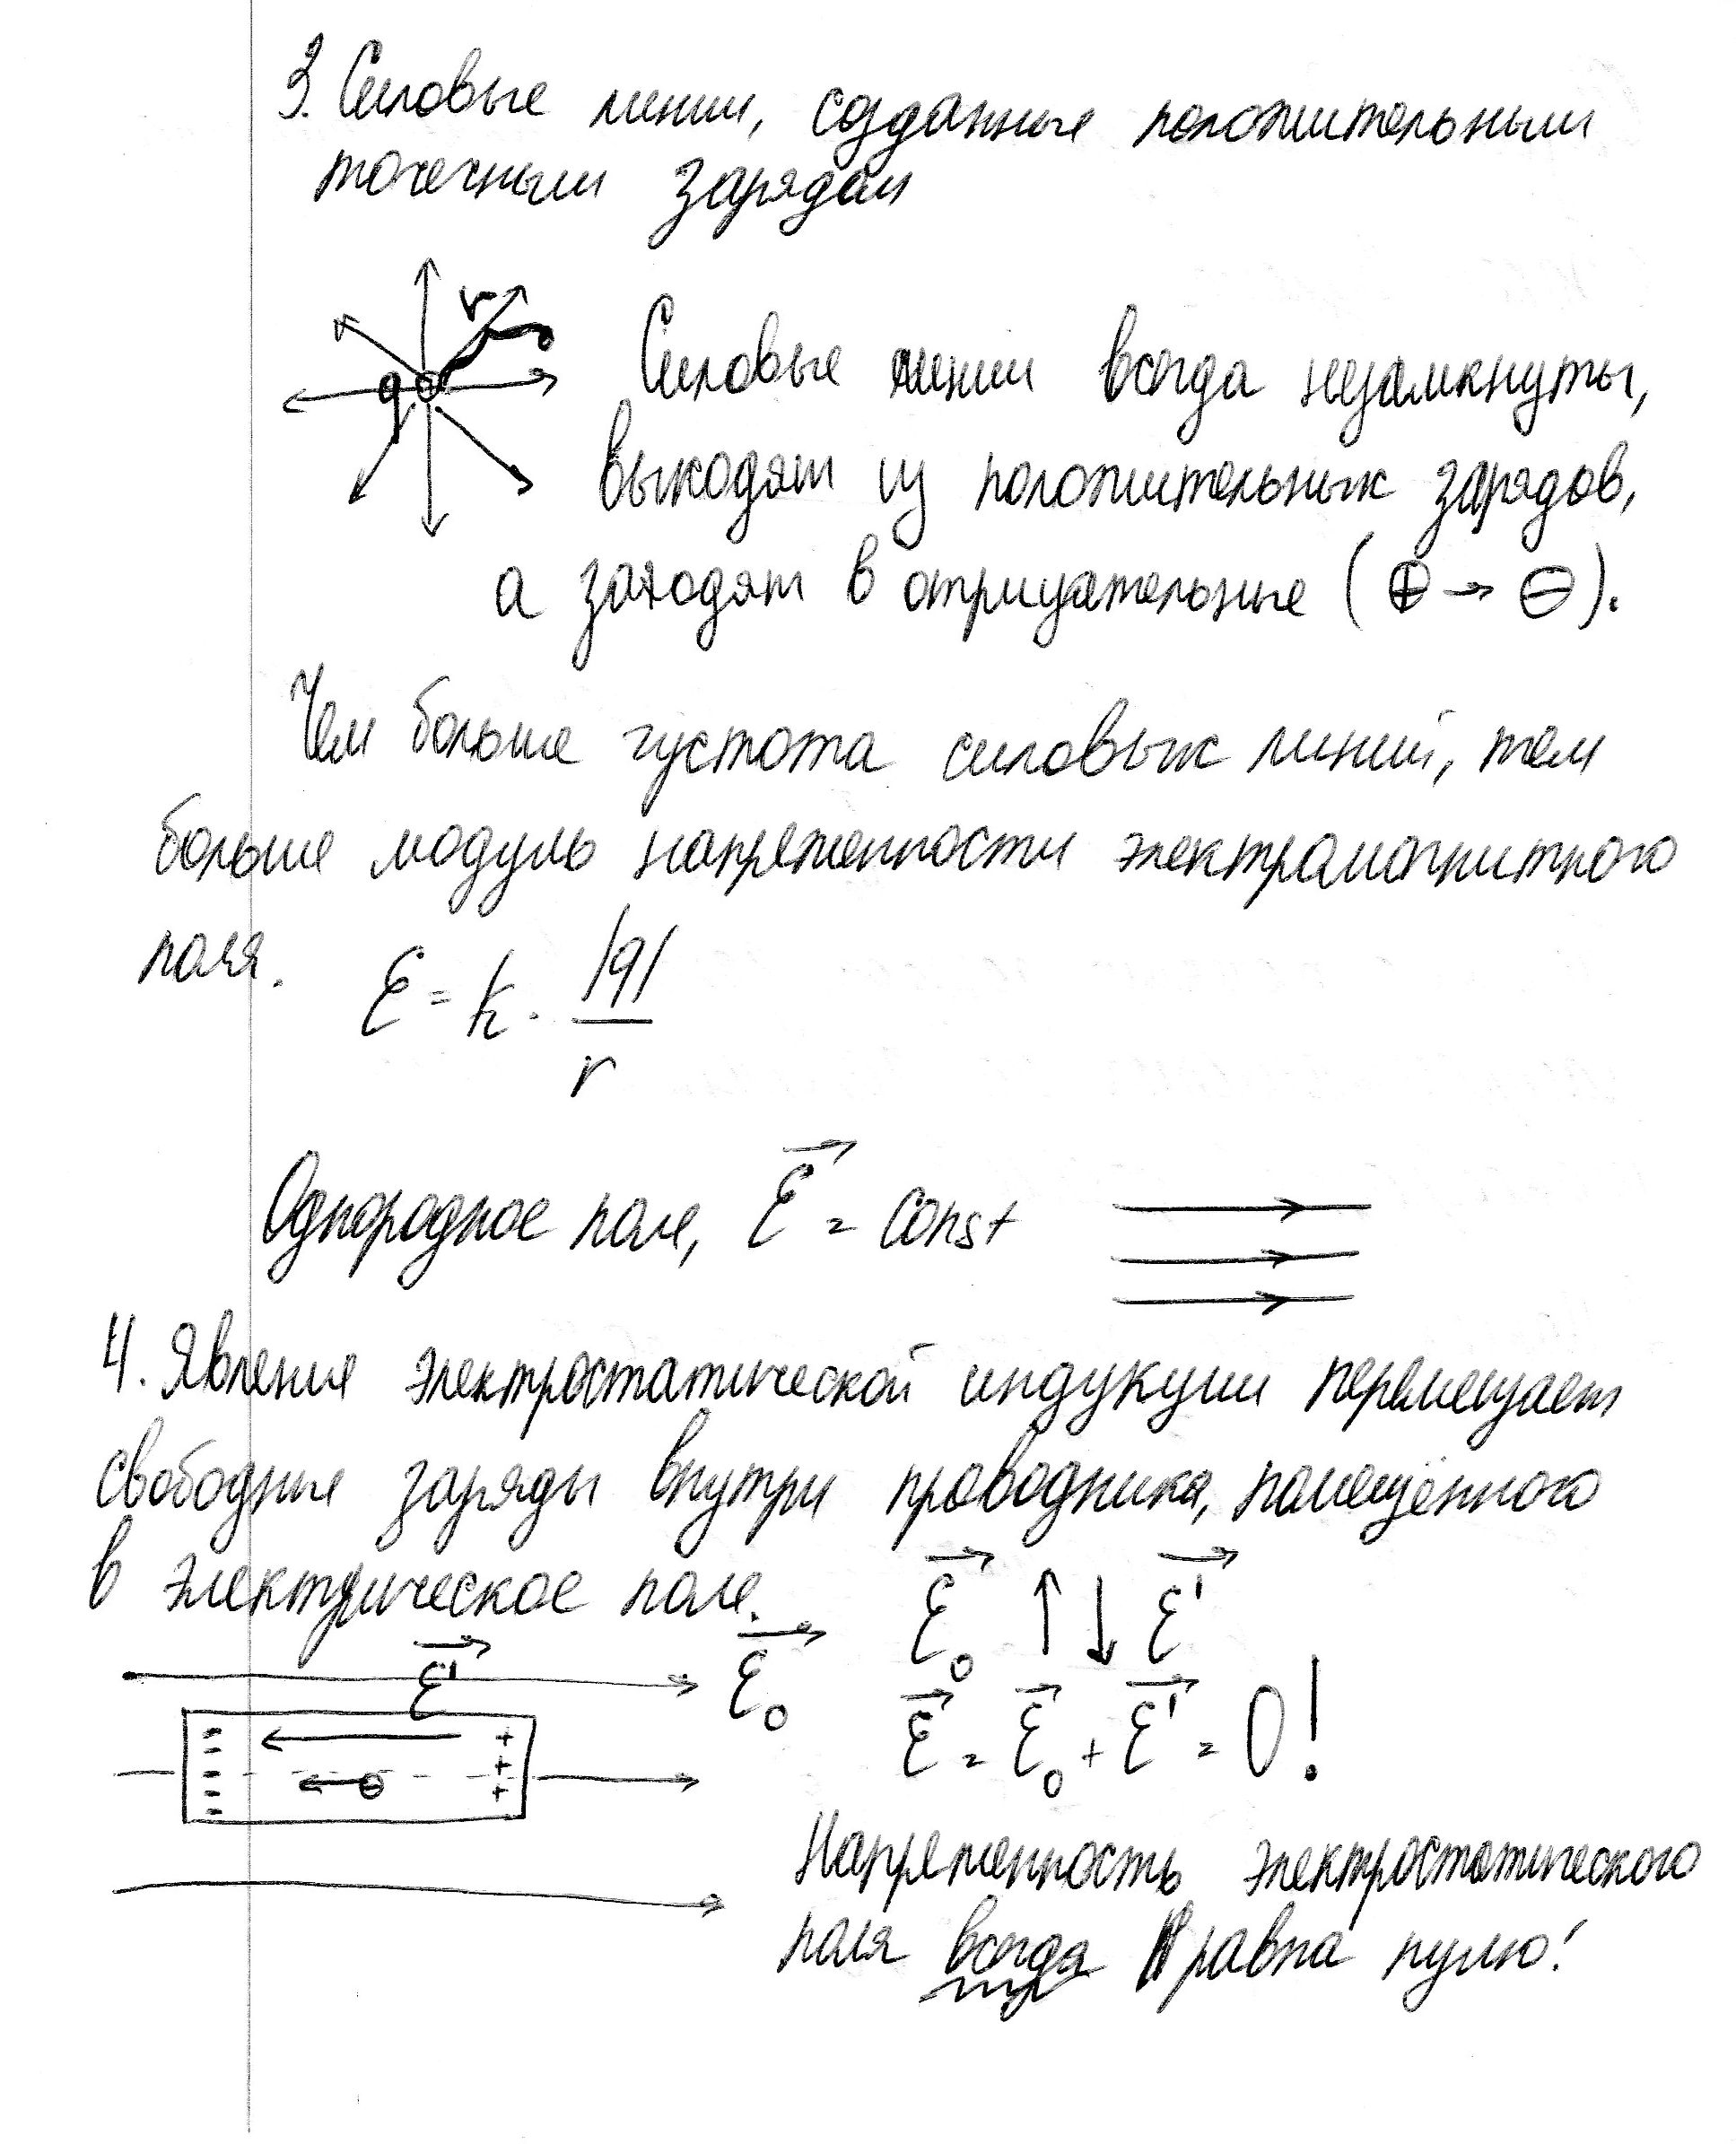 3. Силовые линии, созданные положительным
точечным зарядом
r
q
Силовые линии всегда незамкнуты,
выходят из положительных зарядов,
а заходят в отрицательные (⊕ → ⊖).
Чем больше густота силовых линий, тем
больше модуль напряженности электромагнитного
поля.
E = k · |q| / r
Однородное поле, E⃗ = const
4. Явления электростатической индукции перемещает
свободные заряды внутри проводника, помещённого
в электрическое поле.
E⃗₀ ↑↓ E⃗'
E⃗' E⃗₀
E⃗ = E⃗₀ + E⃗' = 0!
Напряженность электростатического
поля всегда равна нулю!